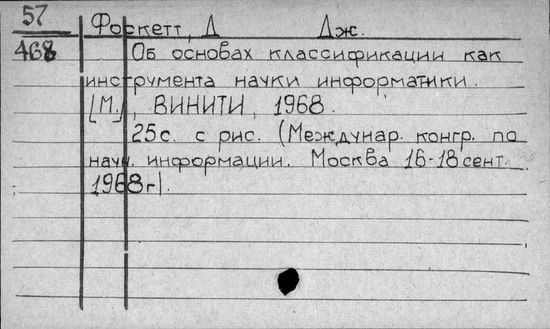 57
468
Фоскетт, Д Дж.
Об основах классификации как
инструмента науки информатики.
[М.], ВИНИТИ, 1968.
25с. с рис. (Междунар. конгр. по
научн. информации. Москва 16-18 сент.
1968г).